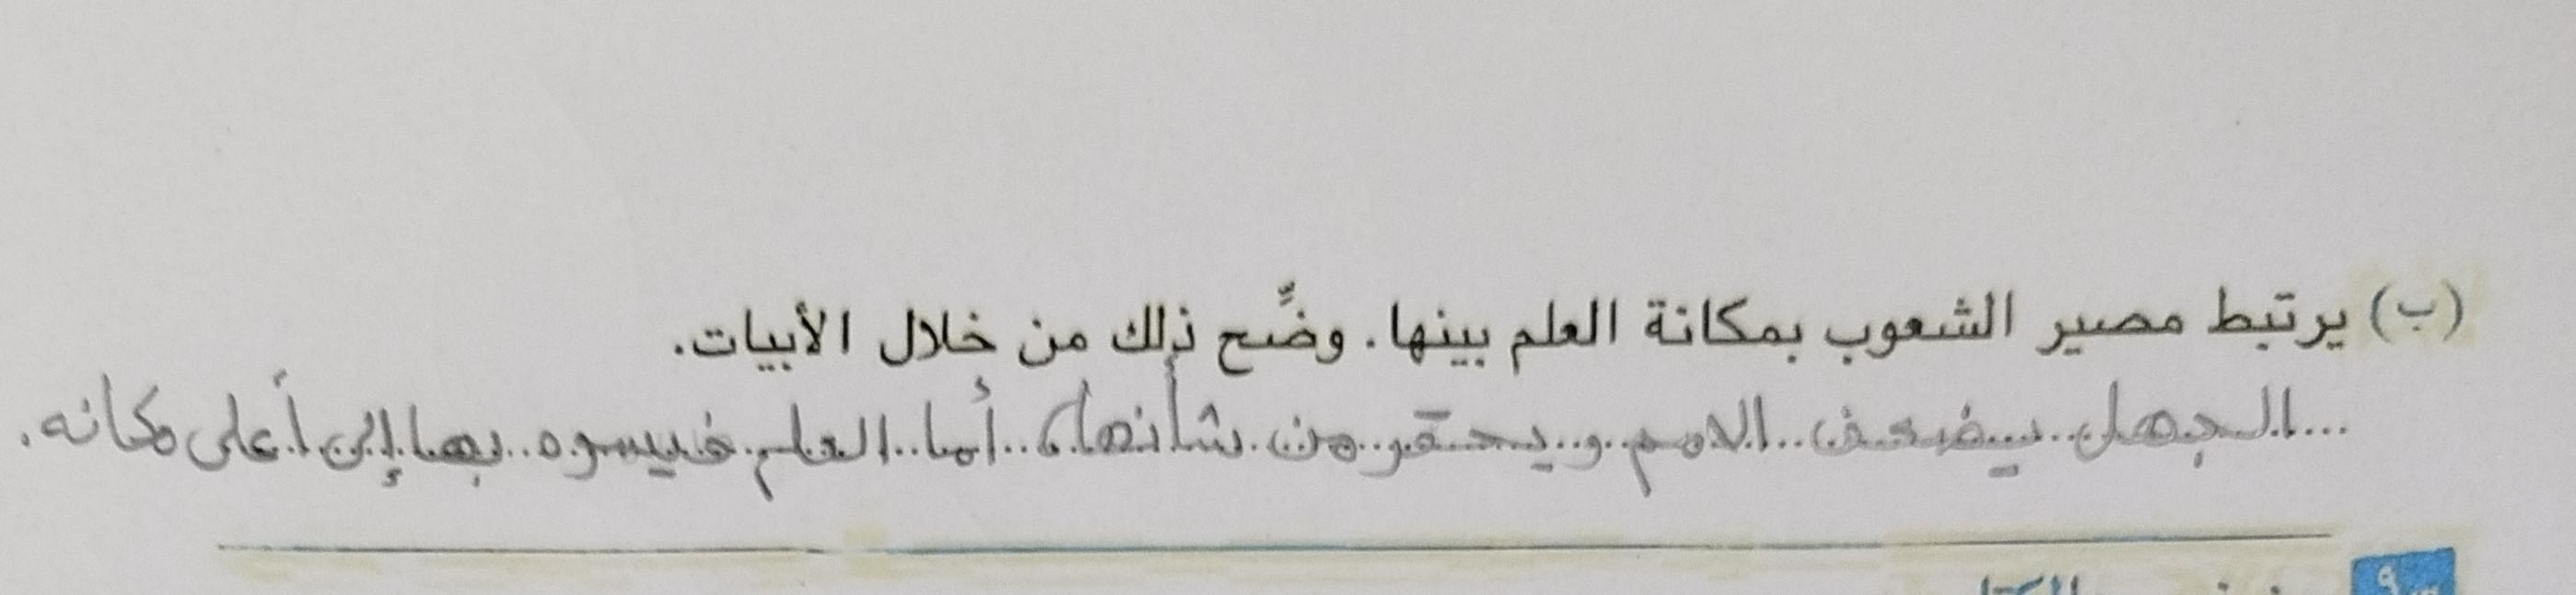 (ب) يرتبط مصير الشعوب بمكانة العلم بينها. وضِّح ذلك من خلال الأبيات.
...الجهل يضعف الامم و يحقر من شأنها، أما العلم فيسوه بها إلى أعلى مكانه.